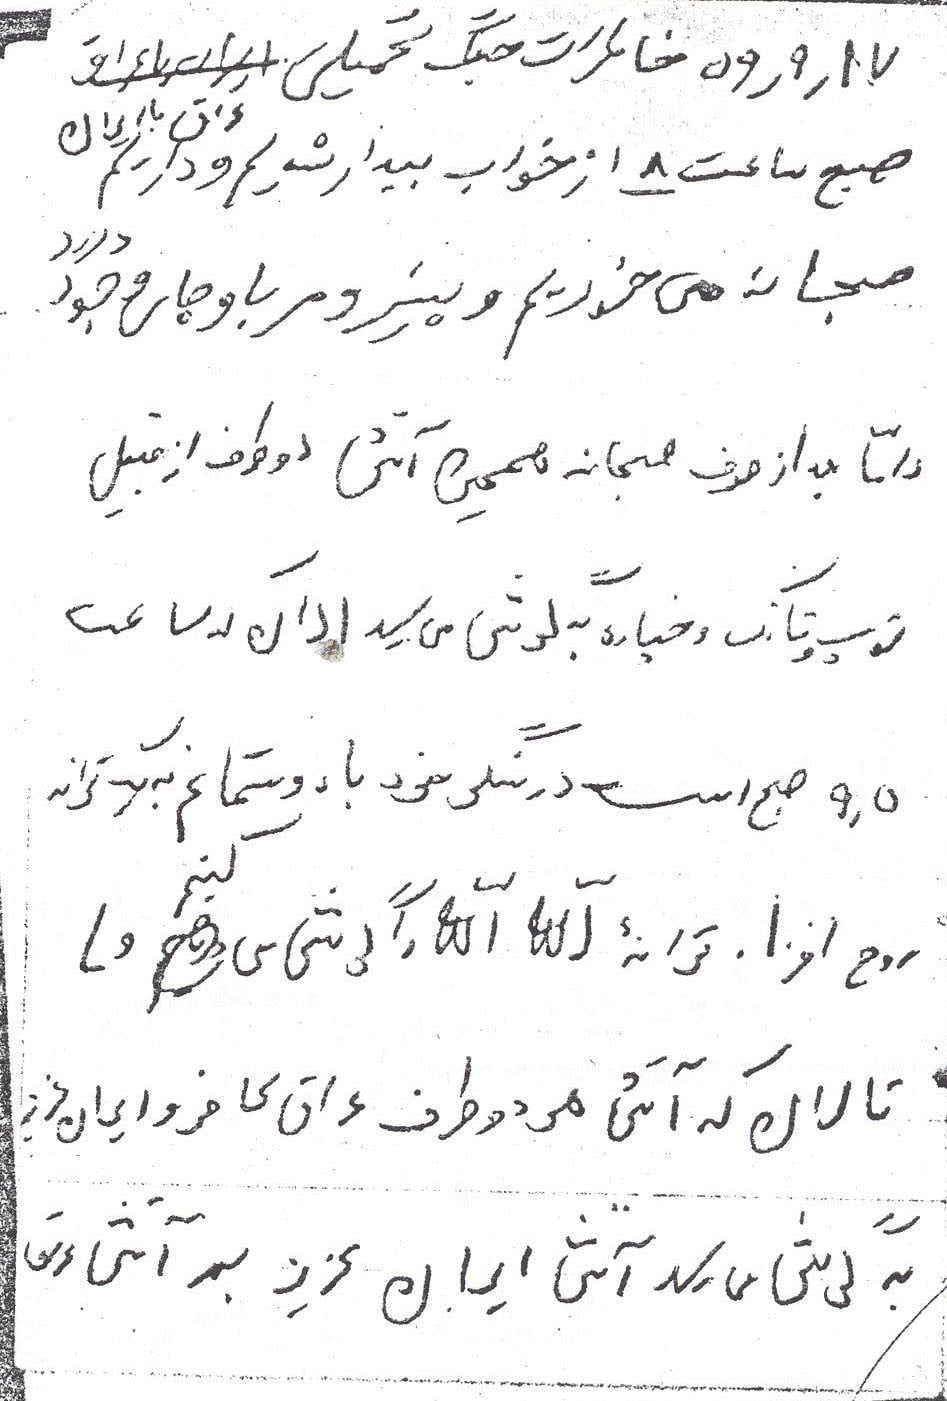 ۵۹ر۹ر۱۷ خاطرات جنگ تحمیلی ایران با عراق
عراق با ایران
صبح ساعت ۸ از خواب بیدار شدیم و داریم
صبحانه می خوریم و پنیر و مربا و چای وجود
دارد
بعد از صرف صبحانه همچین آتش دو طرف از قبیل
توپ و تانک و خمپاره به گوش می رسد الان که ساعت
۹٫۵ صبح است در سنگر خود با دوستانم به یک ترانه
روح افزا . ترانهٔ الله الله را گوش می کنیم و تا
تا الان که آتش هر دو طرف عراق کافر و ایران عزیز
به گوش می رسد آتش ایران عزیز بر آتش عراق